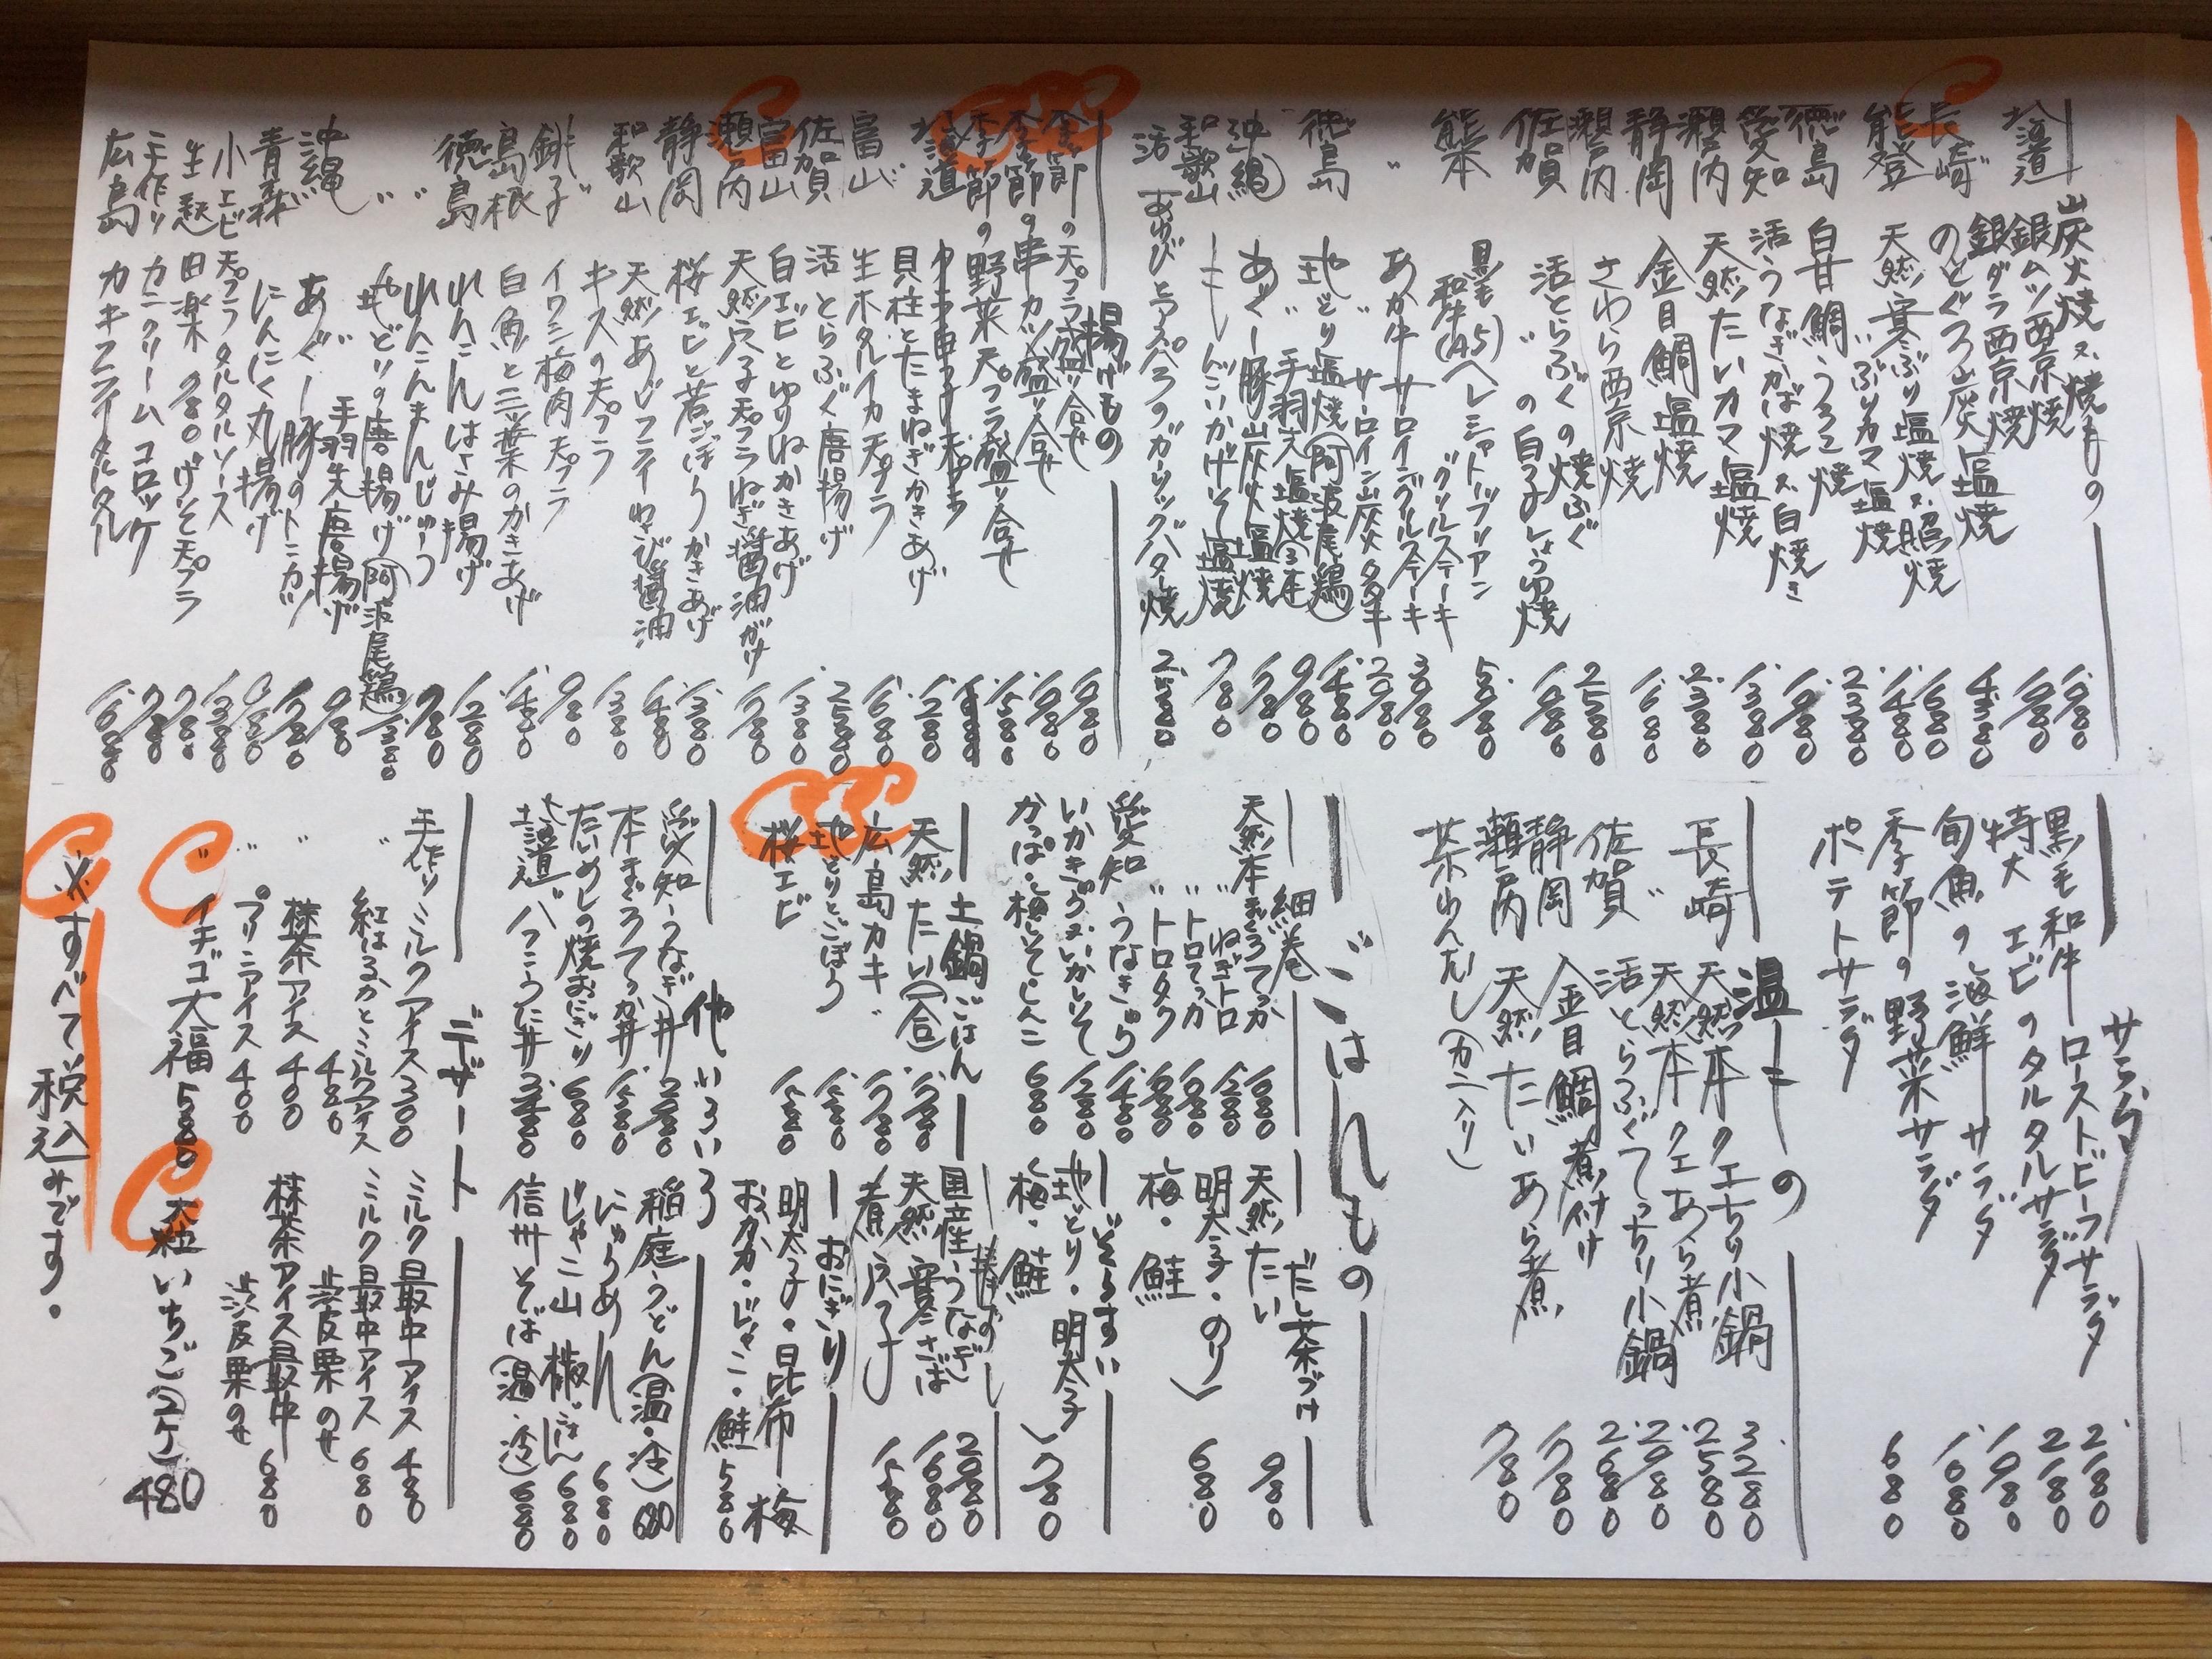 炭火焼又焼もの
北海道 銀ムツ西京焼 1.980
銀ダラ西京焼 1.980
長崎 のどぐろ炭塩焼 4.380
能登 天然寒ぶり塩焼又照焼 1.680
〃 ぶりカマ塩焼 1.480
徳島 白甘鯛うろこ焼 2.380
愛知 活うなぎかば焼又白焼き
瀬戸内 天然たいカマ塩焼 1.380
静岡 金目鯛塩焼 2.380
瀬戸内 さわら西京焼 1.680
佐賀 活とらふぐの焼ふぐ 2.580
〃 の白子しょうゆ焼 1.980
熊本 黒毛和牛(A5)ヘレシャトーブリアン
グリルステーキ
〃 あか牛サーロイングリルステーキ
サーロイン炭火タタキ
徳島 地どり塩焼(阿波尾鶏) 1.480
〃 手羽先塩焼 980
沖縄 あぐー豚炭火塩焼 1.780
和歌山 しんこいかげそ塩焼 780
活 あわびとアスパラのガーリックバター焼 2.580
揚げもの
季節の天プラ盛り合せ 1.980
季節の串カツ盛り合せ 1.980
季節の野菜天プラ盛り合せ 1.580
北海道
貝柱とたまねぎかきあげ 1.280
富山 生ホタルイカ天プラ 1.680
佐賀 活とらふぐ唐揚げ 2.580
富山 白エビとゆりねかきあげ 1.380
瀬戸内 天然穴子天プラねぎ醤油がけ 1.780
静岡 桜エビと若ごぼうかきあげ 1.380
和歌山 天然あじフライわさび醤油 1.480
キスの天プラ 1.380
銚子 イワシ梅肉天プラ 980
島根 白魚と三ツ葉のかきあげ 1.480
徳島 れんこんはさみ揚げ 1.280
〃 れんこんまんじゅう 780
〃 地どりの唐揚げ(阿波尾鶏) 1.380
〃 手羽先唐揚げ 980
沖縄 あぐー豚のトンカツ 1.780
青森 にんにく丸揚げ 980
小エビ天プラタルタルソース 1.380
生麩田楽 980 げそ天プラ 780
手作りカニクリームコロッケ 780
広島 カキフライタルタル 1.080
サラダ
黒毛和牛ローストビーフサラダ 2.180
特大エビのタルタルサラダ 2.180
旬魚の海鮮サラダ 1.980
季節の野菜サラダ 1.680
ポテトサラダ 680
温もの
長崎 天然本クエちり小鍋 3.280
〃 天然本クエあら煮 2.580
佐賀 活とらふぐてっちり小鍋 2.980
静岡 金目鯛煮付け 2.680
瀬戸内 天然たいあら煮 1.780
茶わんむし(カニ入り) 780
ごはんもの
細巻
天然本まぐろてっか 1.680
〃 ねぎトロ 1.280
〃 トロてっか 1.980
〃 トロタク 1.680
愛知 うなきゅう 1.480
いかきゅう又いかしそ 1.280
かっぱ・梅しそ・しんこ 680
だし茶づけ
天然たい 980
明太子・のり
梅・鮭
680
ぞうすい
地どり・明太子
梅・鮭
780
土鍋ごはん
天然たい(一合) 1.780
広島カキ〃 1.780
地どりとごぼう 1.580
桜エビ 1.580
棒ずし
国産うなぎ 2.980
天然寒さば 1.680
煮穴子 1.580
おにぎり
明太子・昆布・梅
おかか・じゃこ・鮭 580
他いろいろ
愛知うなぎ丼 2.980
本まぐろてっか丼 1.580
たいめしの焼おにぎり 680
北海道バフンうに丼 3.480
稲庭うどん(温・冷) 680
にゅうめん 680
じゃこ山椒ごはん 680
信州そば(温・冷) 680
デザート
手作りミルクアイス 300
〃 紅はるかとミルクアイス 480
〃 抹茶アイス 400
〃 プリンアイス 400
〃 イチゴ大福 580
ミルク最中アイス 480
ミルク最中アイス
渋皮栗のせ 680
抹茶アイス最中
渋皮栗のせ 680
大粒いちご(2ケ) 480
※すべて税込みです。